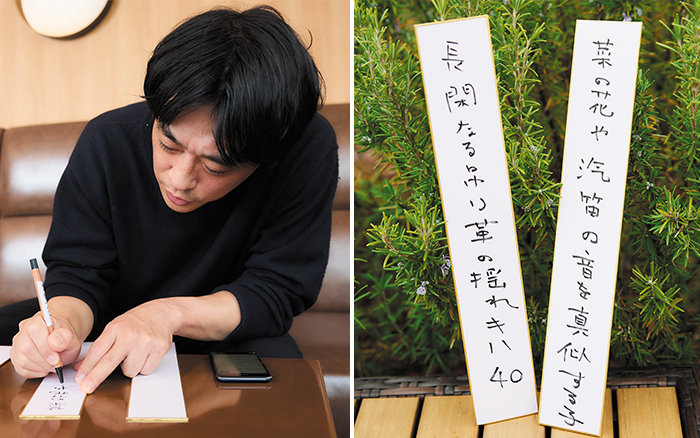 菜の花や汽笛の音を真似する子
長閑なる吊り革の揺れキハ40